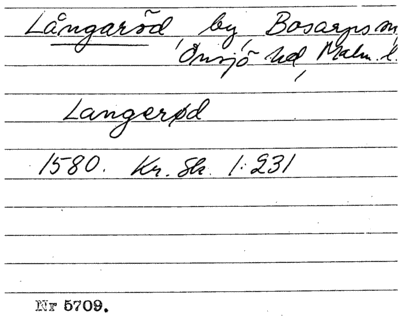 Långaröd, by, Bosarps sn,
Onsjö hd, Malm. l.
Langerød
1580. Kr. Sk. 1:231
Nr 5709.